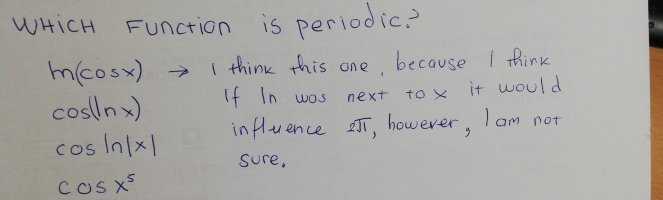 WHICH FUNCTION is periodic?
ln(cosx) → I think this one, because I think
cos(ln x) If ln was next to x it would
cos ln|x| influence 2π, however, I am not
sure.
cos x⁵